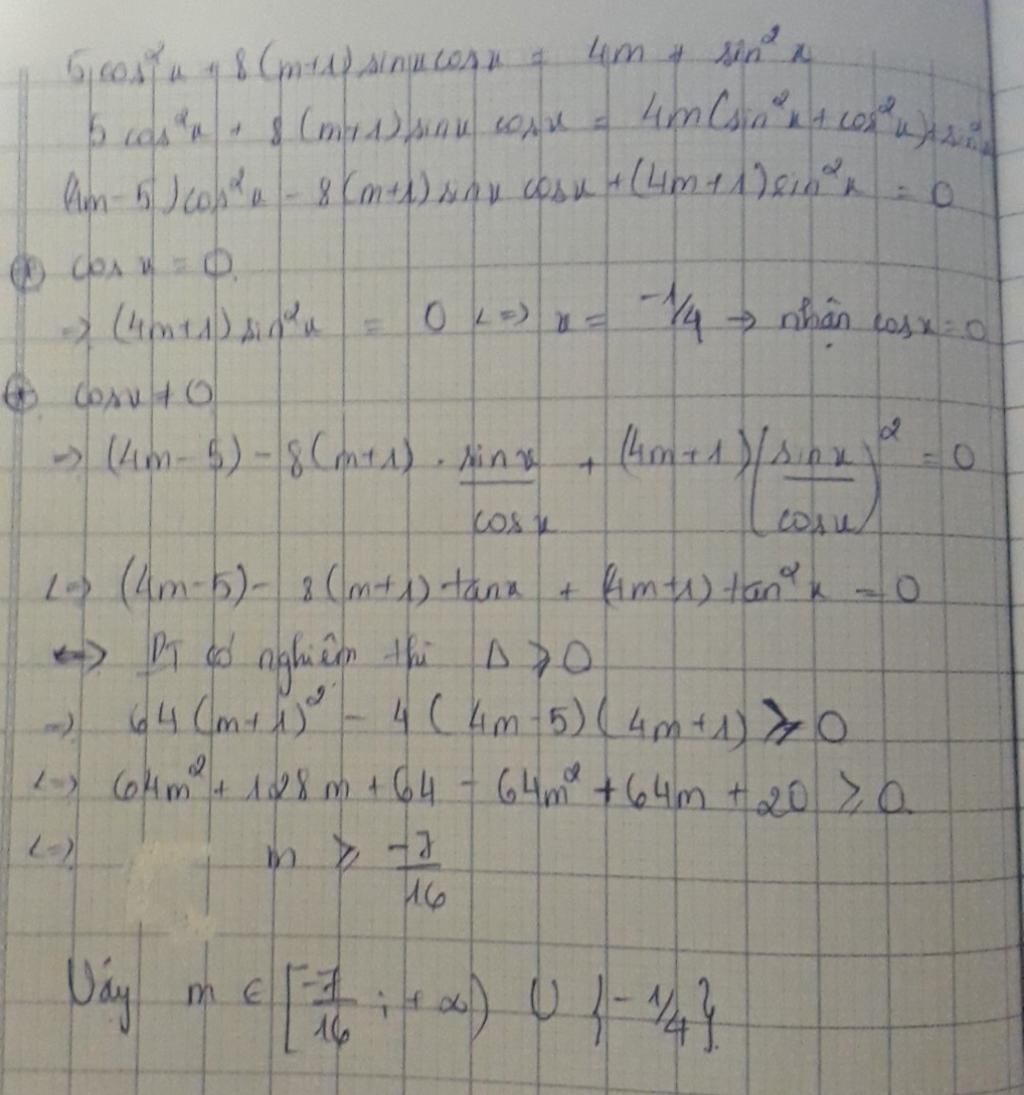 5cos²x + 8(m+1)sinxcosx = 4m + sin²x
5cos²x + 8(m+1)sinx cosx = 4m(sin²x + cos²x) + sin²x
(4m-5)cos²x - 8(m+1)sinx cosx + (4m+1)sin²x = 0
⊛ cosx = 0
=> (4m+1)sin²x = 0 <=> x = -1/4 → nhận cosx=0
⊛ cosx ≠ 0
=> (4m-5) - 8(m+1) . sinx/cosx + (4m+1)(sinx/cosx)² = 0
<=> (4m-5) - 8(m+1)tanx + (4m+1)tan²x = 0
<=> PT có nghiệm thì Δ ≥ 0
=> 64(m+1)² - 4(4m-5)(4m+1) ≥ 0
<=> 64m² + 128m + 64 - 64m² + 64m + 20 ≥ 0
<=> m ≥ -7/16
Vậy m ∈ [-7/16 ; +∞) ∪ {-1/4}